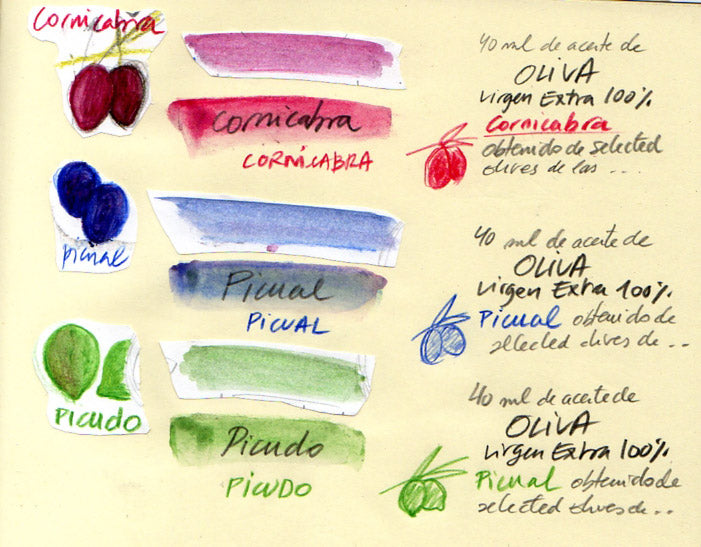 Cornicabra
cornicabra
CORNICABRA
40 ml de aceite de
OLIVA
virgen Extra 100%
Cornicabra
obtenido de selected
olives de las ...
picual
Picual
PICUAL
40 ml de aceite de
OLIVA
virgen Extra 100%
Picual obtenido de
selected olives de ..
PICUDO
Picudo
PICUDO
40 ml de aceite de
OLIVA
virgen Extra 100%
Picual obtenido de
selected olives de ..